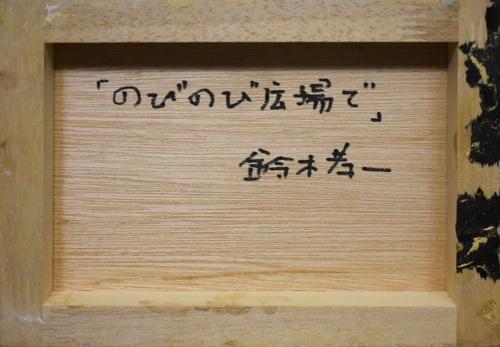 「のびのび広場で」
鈴木孝一